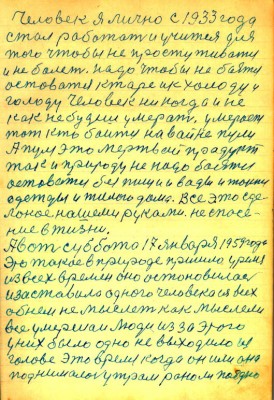 Человек я лично с 1933 года
стал работат и учится для
того чтобы не простуживати
и не болет. надо чтобы не баяти
остоватя к жаре и к холоду и
голоду Человек никогда и не
как не будит умерат. умерает
тот кто баити на вайне пули
А пуля это мертвый продукт
так и природу не надо баятя
остоватя без пищи и вады и
одежды и жилого дома. Все это сде
лоное нашеми руками. не спосе-
ние в жизни.
А вот суббота 17 января 1959 года
Это такое в природе пришло время
из всех времен оно остоновилас
и заставило одного человека за всех
об нем не мыслет как мыслели
все умершаи люди из за этого
у них было одно не выходило из
голове Это время когда он или она
поднималос утрам рано ли поздно